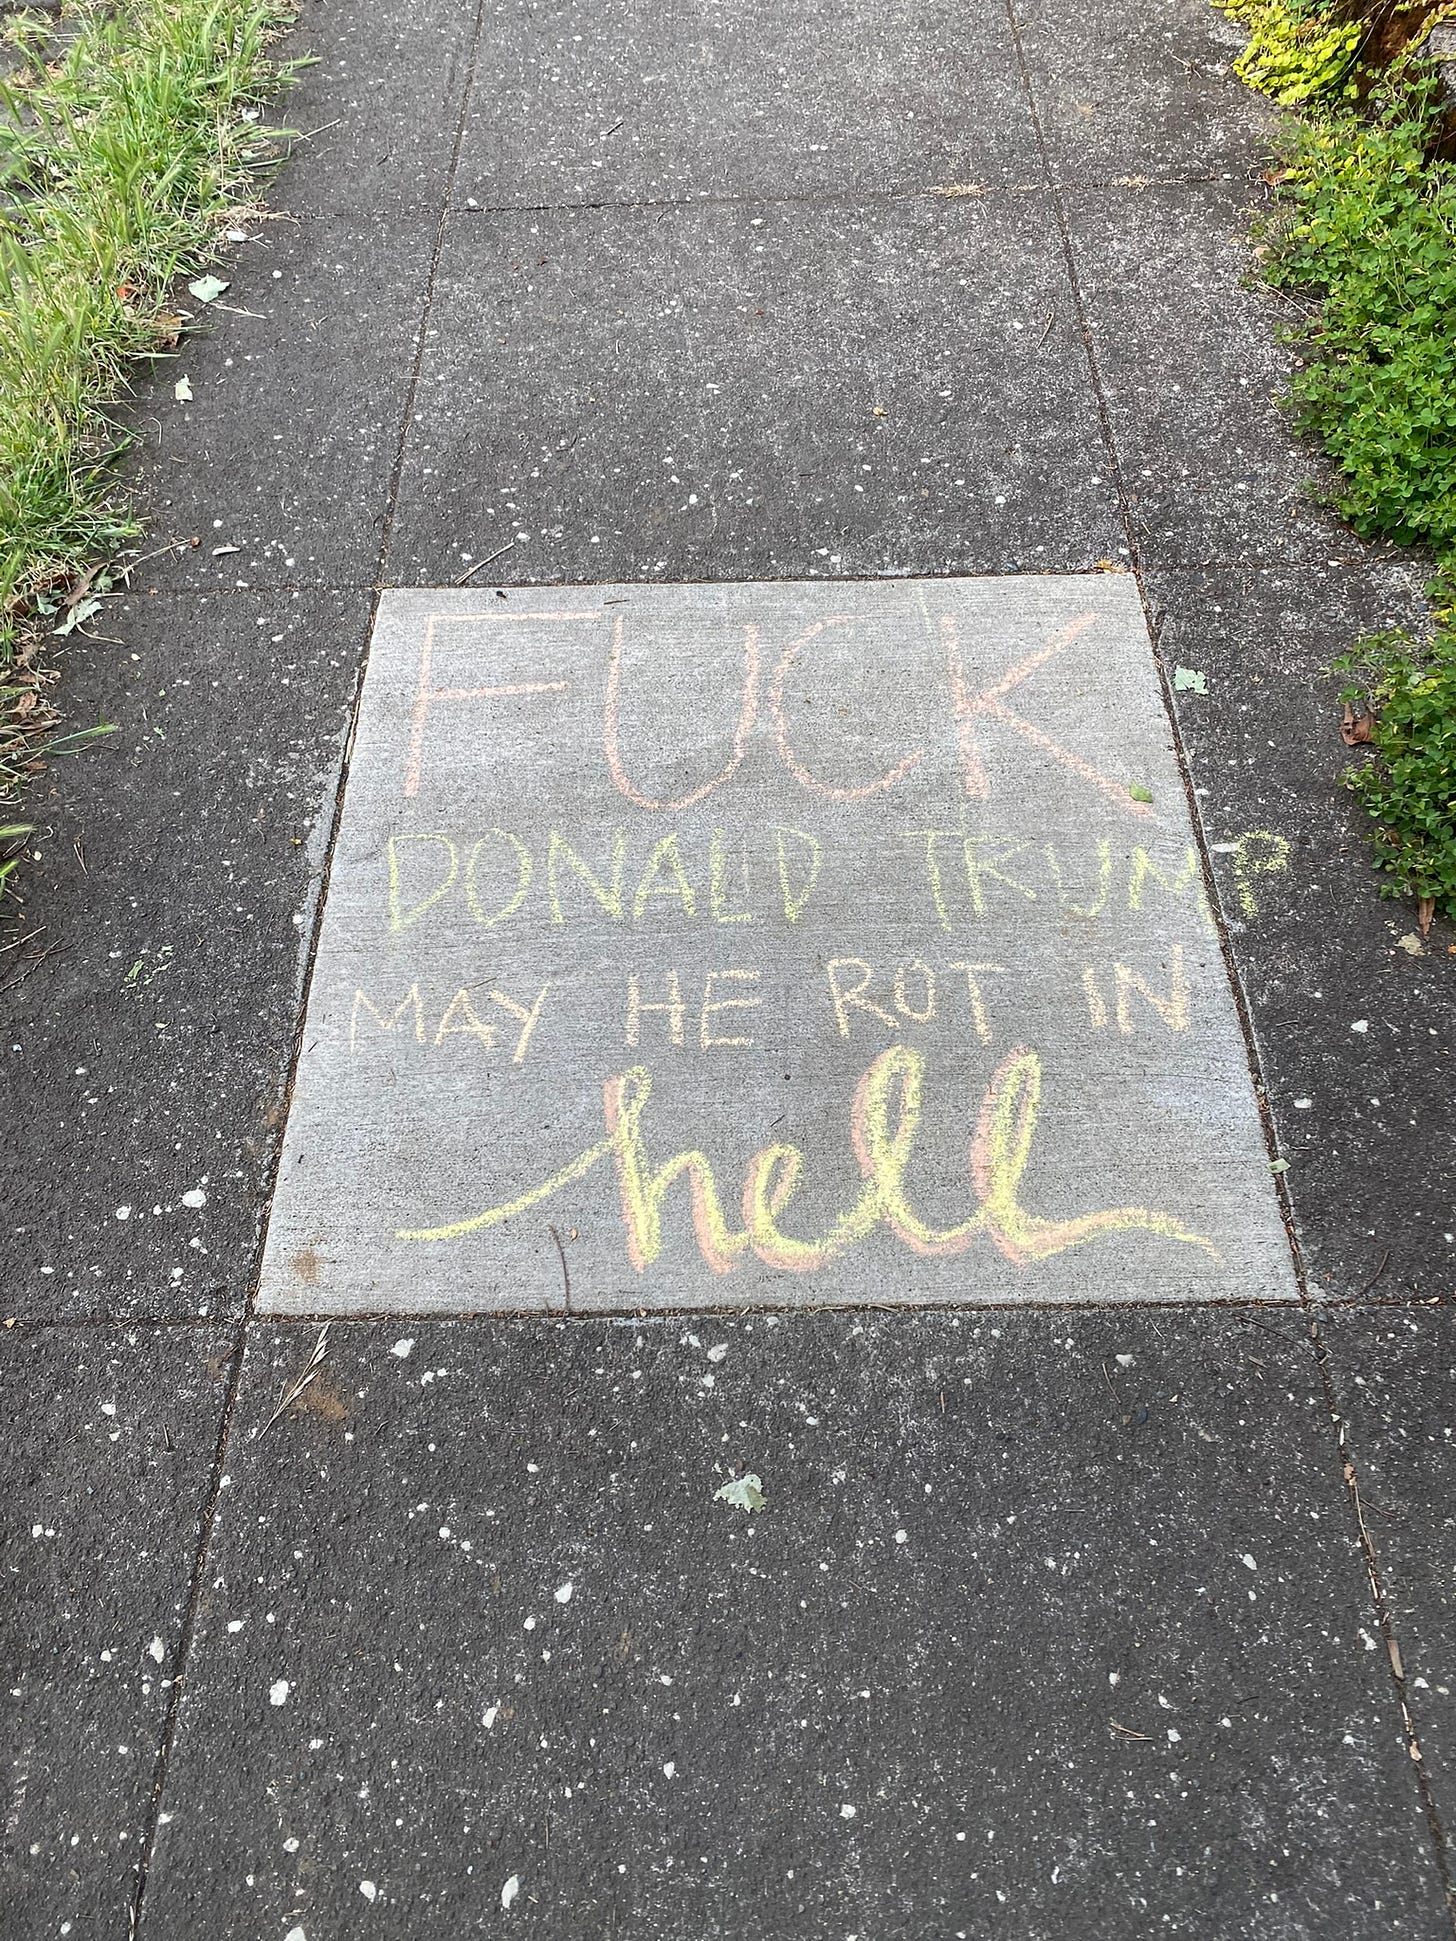 FUCK
DONALD TRUMP
MAY HE ROT IN
hell